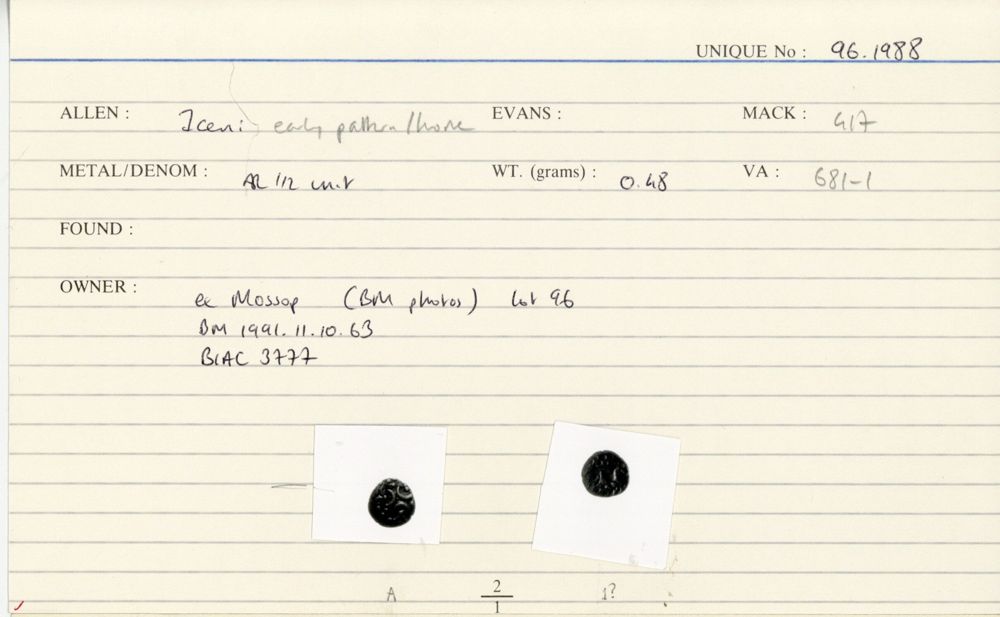 UNIQUE No : 96.1988
ALLEN : Iceni early pattern/horse EVANS : MACK : 417
METAL/DENOM : AR 1/2 unit WT. (grams) : 0.48 VA : 681-1
FOUND :
OWNER : ex Mossop (BM photos) Lot 96
BM 1991.11.10.63
BIAC 3777
A 2/1 1?